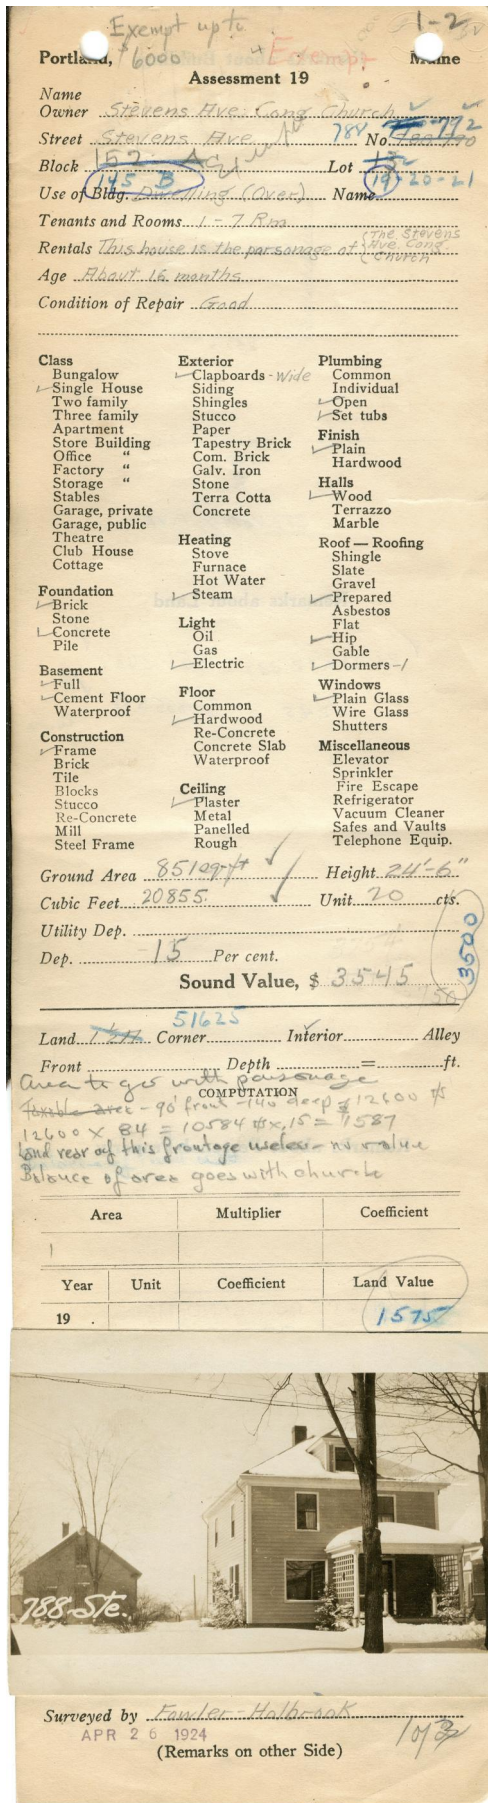 Exempt up to
$6000
Exempt
1-2
Portland, Maine
Assessment 19
Name
Owner Stevens Ave. Cong Church
Street Stevens Ave 788 No. 792
Block 152 A Lot
145 B 19-20-21
Use of Bldg. Dwelling (Over) Name
Tenants and Rooms 1 - 7 Rm
Rentals This house is the parsonage of (The Stevens Ave. Cong Church
Age About 16 months
Condition of Repair Good
Class
Bungalow
Single House
Two family
Three family
Apartment
Store Building
Office "
Factory "
Storage "
Stables
Garage, private
Garage, public
Theatre
Club House
Cottage
Foundation
Brick
Stone
Concrete
Pile
Basement
Full
Cement Floor
Waterproof
Construction
Frame
Brick
Tile
Blocks
Stucco
Re-Concrete
Mill
Steel Frame
Exterior
Clapboards - Wide
Siding
Shingles
Stucco
Paper
Tapestry Brick
Com. Brick
Galv. Iron
Stone
Terra Cotta
Concrete
Heating
Stove
Furnace
Hot Water
Steam
Light
Oil
Gas
Electric
Floor
Common
Hardwood
Re-Concrete
Concrete Slab
Waterproof
Ceiling
Plaster
Metal
Panelled
Rough
Plumbing
Common
Individual
Open
Set tubs
Finish
Plain
Hardwood
Halls
Wood
Terrazzo
Marble
Roof — Roofing
Shingle
Slate
Gravel
Prepared
Asbestos
Flat
Hip
Gable
Dormers -1
Windows
Plain Glass
Wire Glass
Shutters
Miscellaneous
Elevator
Sprinkler
Fire Escape
Refrigerator
Vacuum Cleaner
Safes and Vaults
Telephone Equip.
Ground Area 851 sq-ft Height 24'-6"
Cubic Feet 20855. Unit 20 cts.
Utility Dep.
Dep. 15 Per cent.
3500
Sound Value, $ 3545
51625
Land Corner Interior Alley
Front Depth = ft.
Area to go with parsonage
COMPUTATION
Taxable area - 90' front - 140 deep = 12600
12600 x 84 = 10584 x .15 = 1587
Land rear of this frontage useless - no value
Balance of area goes with church
Area Multiplier Coefficient
1
Year Unit Coefficient Land Value
19 . 1575
788-Ste.
Surveyed by Fowler-Holbrook
APR 26 1924
(Remarks on other Side)